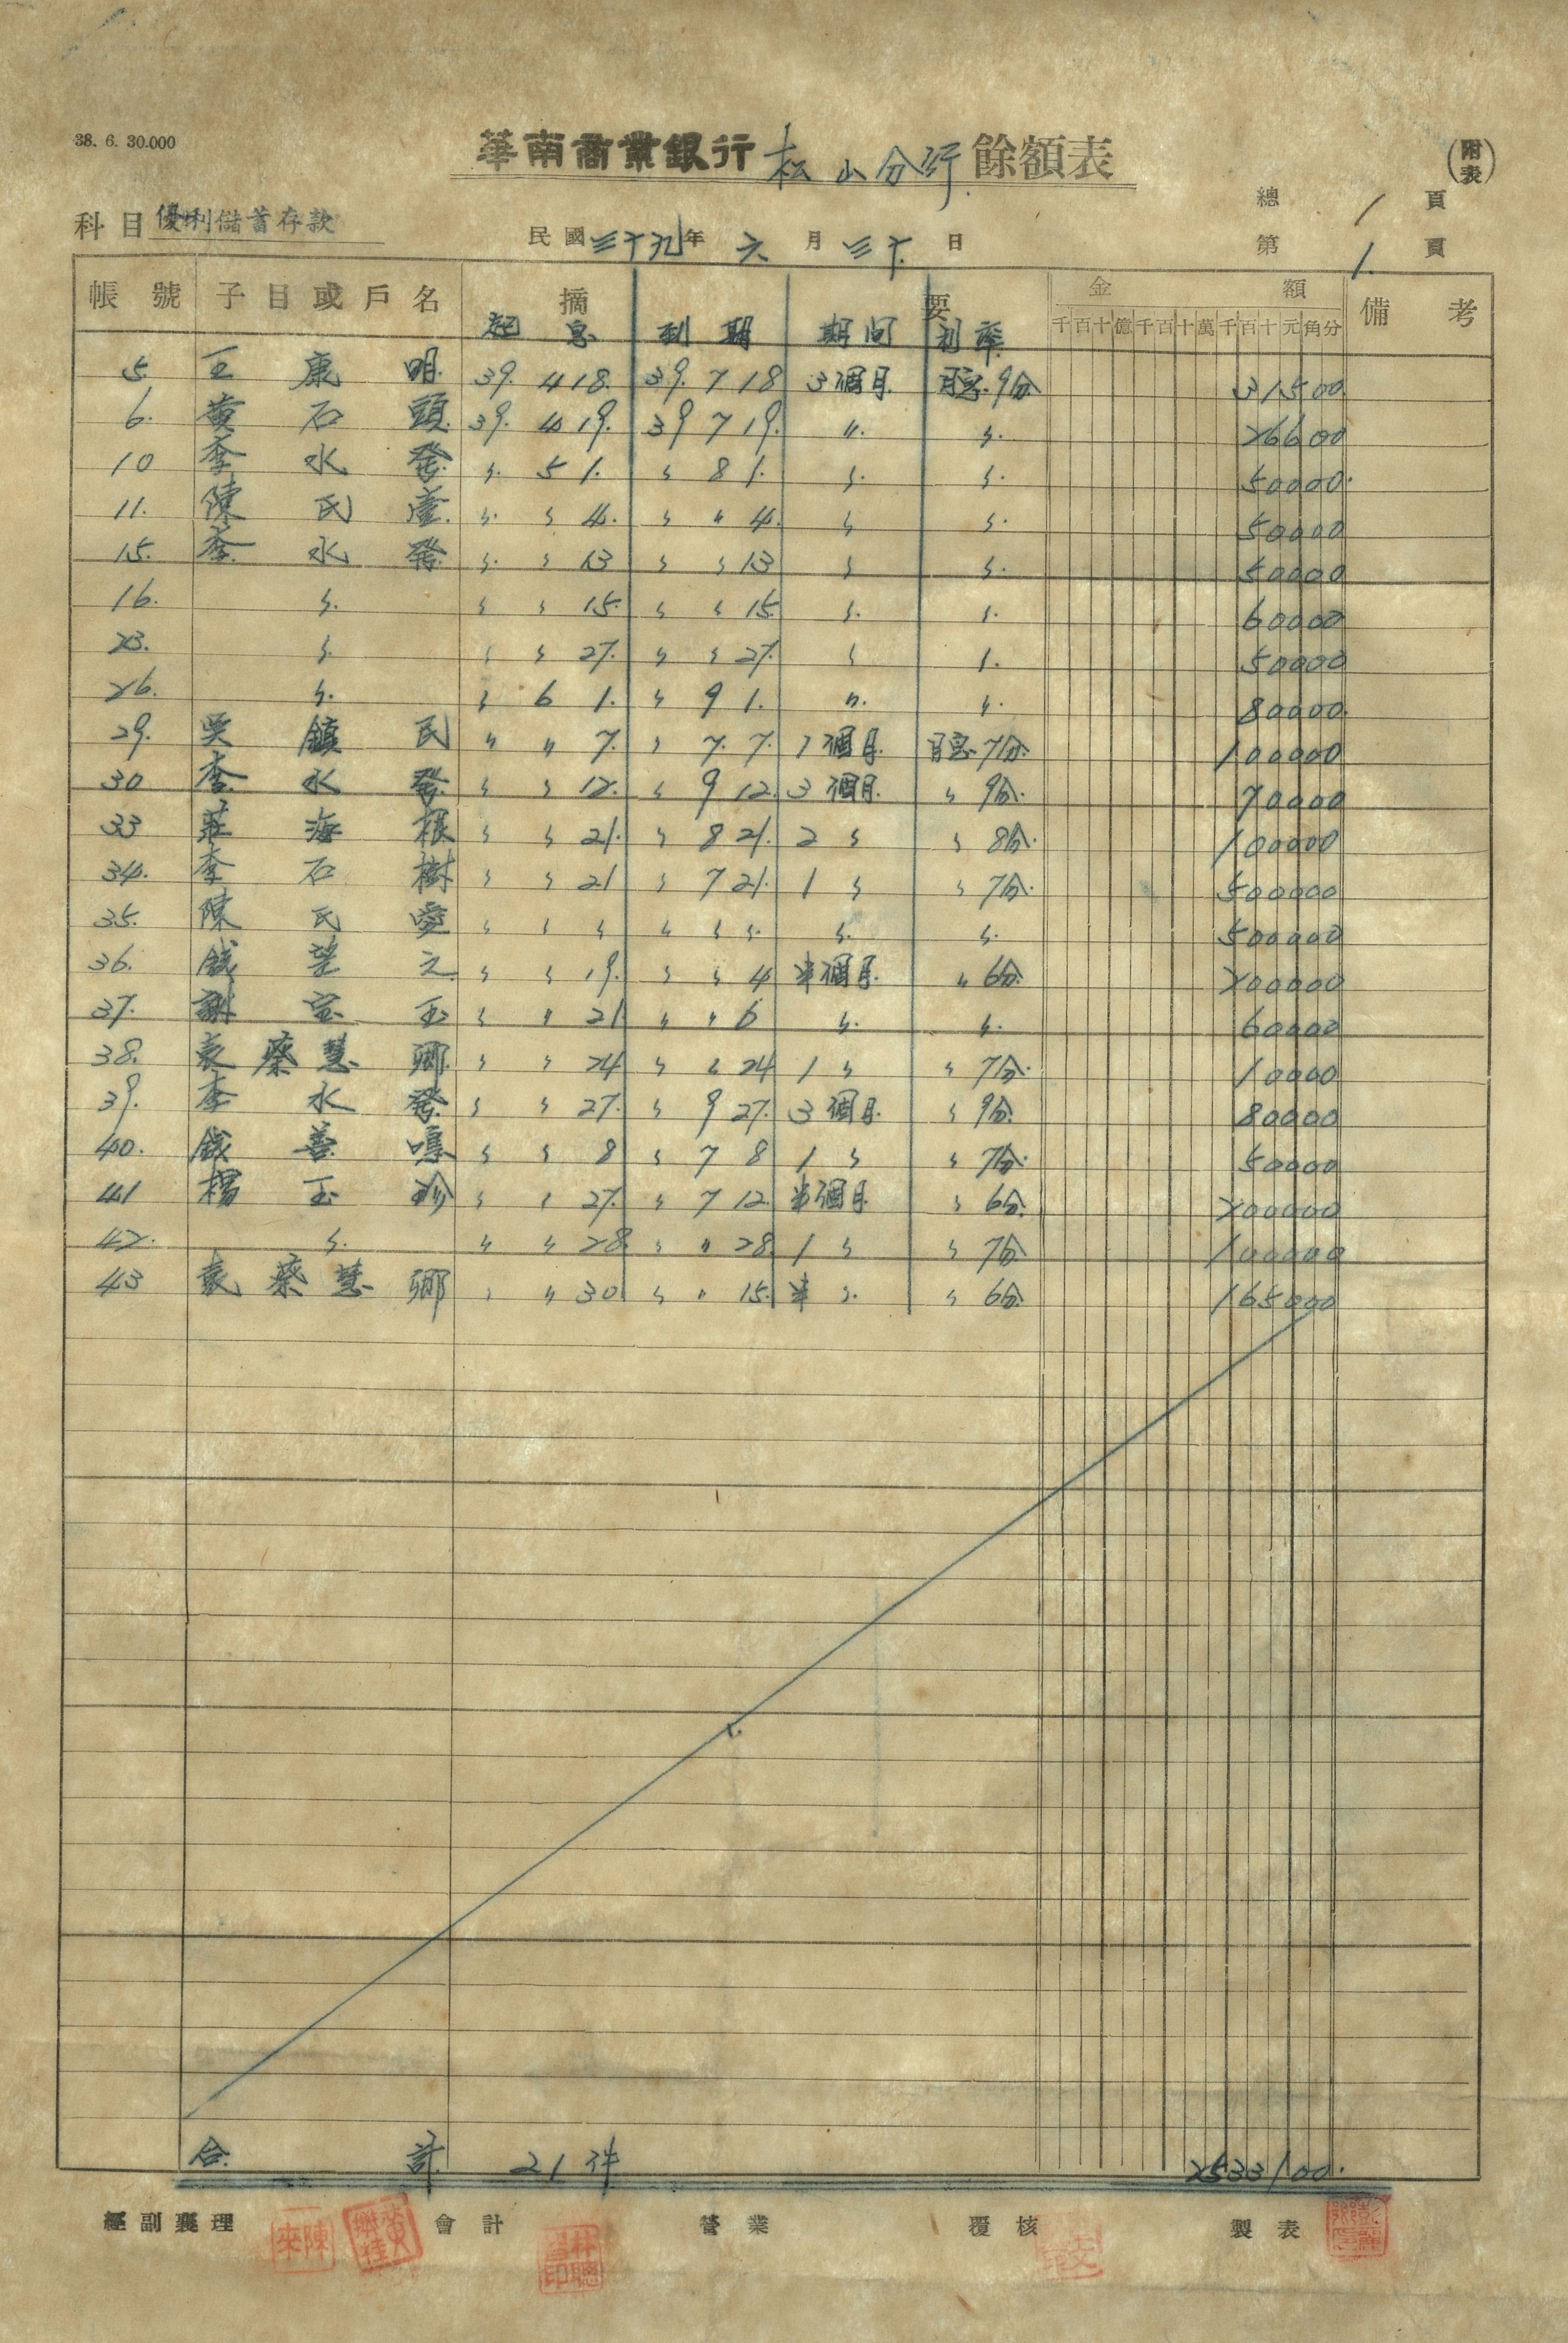 38. 6. 30.000
華南商業銀行 松山分行 餘額表
(附表)
總 1 頁
科目 優利儲蓄存款
民國 三十九 年 六 月 三十 日
第 1. 頁
帳號 子目或戶名 摘要 金額 備考
起息 到期 期间 利率 千百十億千百十萬千百十元角分
5. 王康明. 39. 4 18. 39. 7 18 3個月. 月息.9分 31500
6. 黄石頭. 39. 4 19. 39 7 19. 〃. 〃. 26600
10 李水發. 〃. 5 1. 〃 8 1. 〃. 〃. 50000.
11. 陳民 〃. 〃 4. 〃 〃 4. 〃 〃. 50000
15. 李水發. 〃. 〃 13 〃 〃 13 〃 〃. 50000
16. 〃. 〃 〃 15. 〃 〃 15. 〃. 〃. 60000
23. 〃. 〃 〃 27. 〃 〃 27. 〃 〃. 50000
26. 〃. 〃 6 1. 〃 9 1. 〃. 〃. 80000.
29. 吳鎮民 〃 〃 7. 〃 7. 7. 1個月. 月息.7分. 100000
30 李水發. 〃 〃 12. 〃 9 12. 3個月. 〃 9分. 70000
33 莊海根 〃 〃 21. 〃 8 21. 2 〃 〃 8分. 100000
34. 李石樹 〃 〃 21 〃 7 21. 1 〃 〃 7分. 500000
35. 陳民愛 〃 〃 〃 〃 〃 〃. 〃. 〃. 500000
36. 錢望之 〃 〃 19. 〃 〃 4 半個月. 〃 6分. 200000
37. 謝宝玉 〃 〃 21 〃 〃 6 〃. 〃. 60000
38. 袁蔡慧卿. 〃 〃 24 〃 〃 24 1 〃 〃 7分. 10000
39. 李水發. 〃 〃 27. 〃 9 27. 3個月. 〃 9分. 80000
40. 錢善鳴 〃 〃 8 〃 7 8 1 〃 〃 7分. 50000
41 楊玉珍 〃 〃 27. 〃 7 12 半個月. 〃 6分. 200000
42. 〃. 〃 〃 28. 〃 〃 28. 1 〃 〃 7分 100000
43 袁蔡慧卿 〃 〃 30 〃 〃 15. 半 〃. 〃 6分. 165000
合計 21件 2533100.
經副襄理 會計 營業 覆核 製表